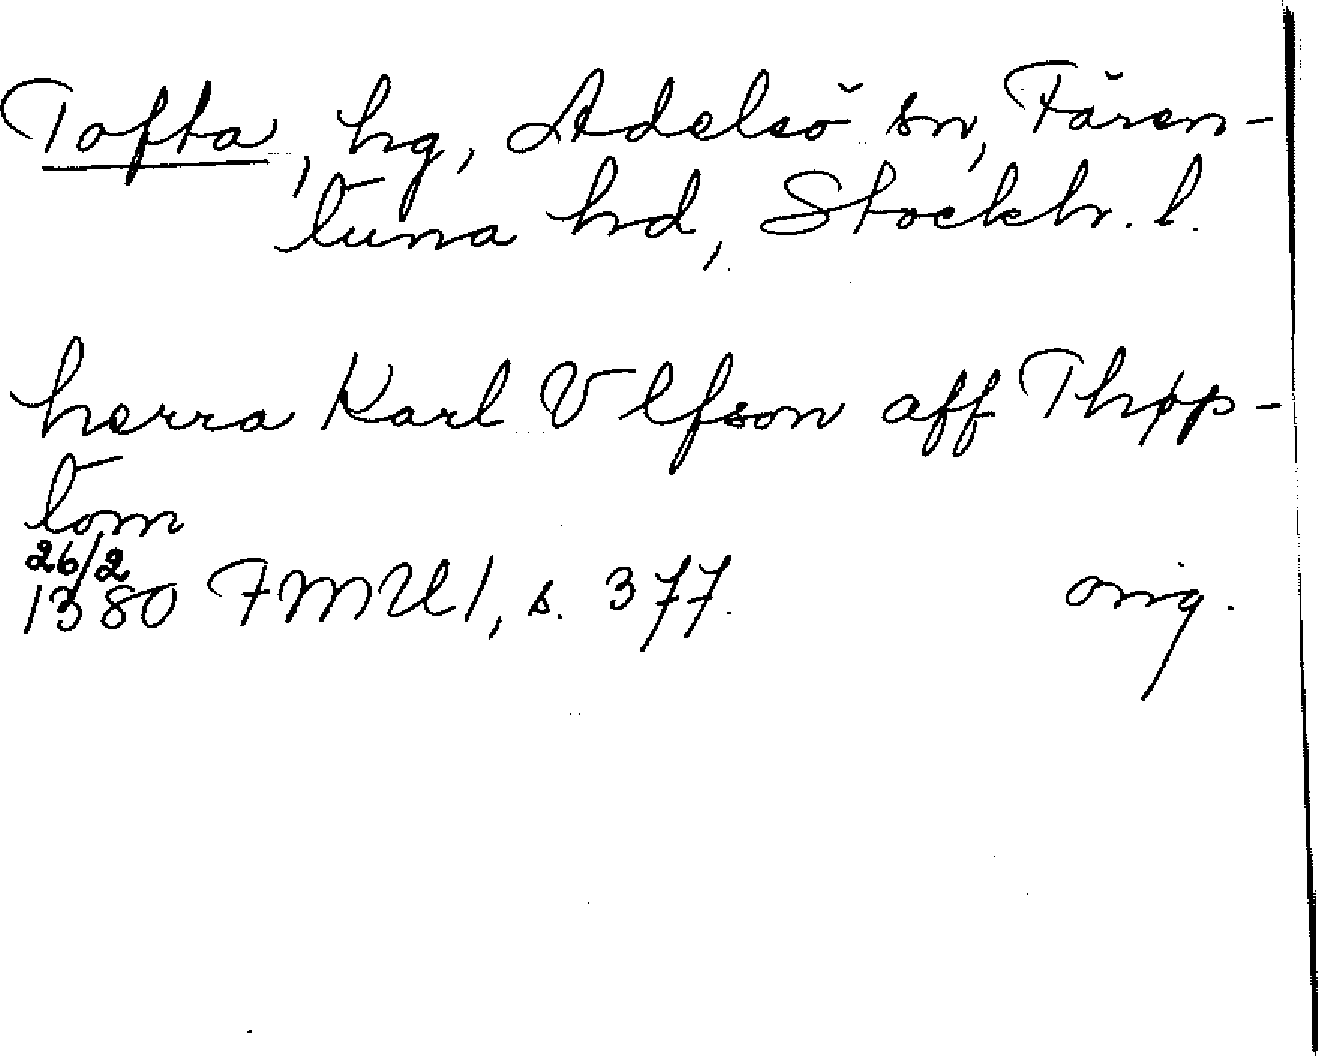 Tofta, hg, Adelsö sn, Fären-
tuna hd, Stockh. l.
herra Karl Vlfson aff Thøp-
tom
26/2
1380 FMU 1, s. 377. orig.